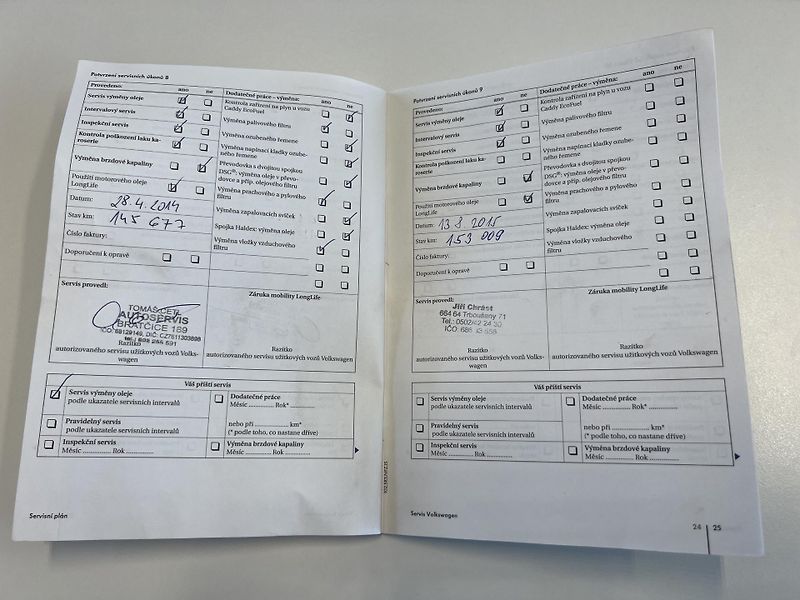 Potvrzení servisních úkonů 8
Provedeno:
ano
ne
Servis výměny oleje
Intervalový servis
Inspekční servis
Kontrola poškození laku ka-
roserie
Výměna brzdové kapaliny
Použití motorového oleje
LongLife
Datum: 28.4.2014
Stav km: 145 677
Číslo faktury:
Doporučení k opravě
Dodatečné práce – výměna:
ano
ne
Kontrola zařízení na plyn u vozu
Caddy EcoFuel
Výměna palivového filtru
Výměna ozubeného řemene
Výměna napínací kladky ozube-
ného řemene
Převodovka s dvojitou spojkou
DSG®: výměna oleje v převo-
dovce a příp. olejového filtru
Výměna prachového a pylového
filtru
Výměna zapalovacích svíček
Spojka Haldex: výměna oleje
Výměna vložky vzduchového
filtru
Servis provedl:
TOMÁŠ
AUTOSERVIS
BRATČICE 189
Razítko
autorizovaného servisu užitkových vozů Volks-
wagen
Záruka mobility LongLife
Razítko
autorizovaného servisu užitkových vozů Volkswagen
Váš příští servis
Servis výměny oleje
podle ukazatele servisních intervalů
Pravidelný servis
podle ukazatele servisních intervalů
Inspekční servis
Měsíc ............. Rok .............
Dodatečné práce
Měsíc ............. Rok* .............
nebo při ................. km*
(* podle toho, co nastane dříve)
Výměna brzdové kapaliny
Měsíc ............. Rok .............
Servisní plán
Potvrzení servisních úkonů 9
Provedeno:
ano
ne
Servis výměny oleje
Intervalový servis
Inspekční servis
Kontrola poškození laku ka-
roserie
Výměna brzdové kapaliny
Použití motorového oleje
LongLife
Datum: 13 8. 2015
Stav km: 153 009
Číslo faktury:
Doporučení k opravě
Dodatečné práce – výměna:
ano
ne
Kontrola zařízení na plyn u vozu
Caddy EcoFuel
Výměna palivového filtru
Výměna ozubeného řemene
Výměna napínací kladky ozube-
ného řemene
Převodovka s dvojitou spojkou
DSG®: výměna oleje v převo-
dovce a příp. olejového filtru
Výměna prachového a pylového
filtru
Výměna zapalovacích svíček
Spojka Haldex: výměna oleje
Výměna vložky vzduchového
filtru
Servis provedl:
Jiří Chrást
664 64 Trboušany 71
Tel.: 0502/42 24 30
IČO:
Razítko
autorizovaného servisu užitkových vozů Volkswagen
Záruka mobility LongLife
Razítko
autorizovaného servisu užitkových vozů Volkswagen
Váš příští servis
Servis výměny oleje
podle ukazatele servisních intervalů
Pravidelný servis
podle ukazatele servisních intervalů
Inspekční servis
Měsíc ............. Rok .............
Dodatečné práce
Měsíc ............. Rok* .............
nebo při ................. km*
(* podle toho, co nastane dříve)
Výměna brzdové kapaliny
Měsíc ............. Rok .............
Servis Volkswagen
24 25